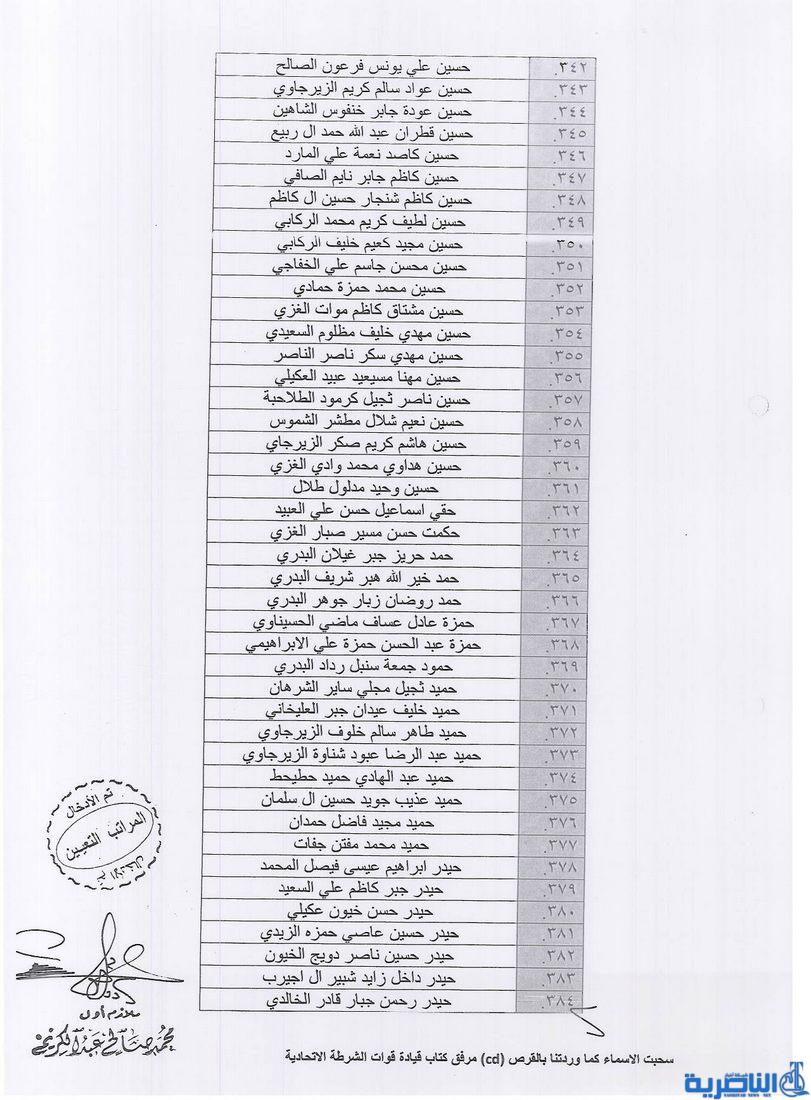 ٣٤٢. حسين علي يونس فرعون الصالح
٣٤٣. حسين عواد سالم كريم الزيرجاوي
٣٤٤. حسين عودة جابر خنفوس الشاهين
٣٤٥. حسين قطران عبد الله حمد ال ربيع
٣٤٦. حسين كاصد نعمة علي المارد
٣٤٧. حسين كاظم جابر نايم الصافي
٣٤٨. حسين كاظم شنجار حسين ال كاظم
٣٤٩. حسين لطيف كريم محمد الركابي
٣٥٠. حسين مجيد كعيم خليف الركابي
٣٥١. حسين محسن جاسم علي الخفاجي
٣٥٢. حسين محمد حمزة حمادي
٣٥٣. حسين مشتاق كاظم موات الغزي
٣٥٤. حسين مهدي خليف مظلوم السعيدي
٣٥٥. حسين مهدي سكر ناصر الناصر
٣٥٦. حسين مهنا مسيعيد عبيد العكيلي
٣٥٧. حسين ناصر ثجيل كرمود الطلاحبة
٣٥٨. حسين نعيم شلال مطشر الشموس
٣٥٩. حسين هاشم كريم صكر الزيرجاي
٣٦٠. حسين هداوي محمد وادي الغزي
٣٦١. حسين وحيد مدلول طلال
٣٦٢. حقي اسماعيل حسن علي العبيد
٣٦٣. حكمت حسن مسير صبار الغزي
٣٦٤. حمد حريز جبر غيلان البدري
٣٦٥. حمد خير الله هبر شريف البدري
٣٦٦. حمد روضان زبار جوهر البدري
٣٦٧. حمزة عادل عساف ماضي الحسيناوي
٣٦٨. حمزة عبد الحسن حمزة علي الابراهيمي
٣٦٩. حمود جمعة سنبل رداد البدري
٣٧٠. حميد ثجيل مجلي ساير الشرهان
٣٧١. حميد خليف عيدان جبر العليخاني
٣٧٢. حميد طاهر سالم خلوف الزيرجاوي
٣٧٣. حميد عبد الرضا عبود شناوة الزيرجاوي
٣٧٤. حميد عبد الهادي حميد حطيحط
٣٧٥. حميد عذيب جويد حسين ال سلمان
٣٧٦. حميد مجيد فاضل حمدان
٣٧٧. حميد محمد مفتن جفات
٣٧٨. حيدر ابراهيم عيسى فيصل المحمد
٣٧٩. حيدر جبر كاظم علي السعيد
٣٨٠. حيدر حسن خيون عكيلي
٣٨١. حيدر حسين عاصي حمزه الزيدي
٣٨٢. حيدر حسين ناصر دويج الخيون
٣٨٣. حيدر داخل زايد شبير ال اجيرب
٣٨٤. حيدر رحمن جبار قادر الخالدي
تم الأدخال
المراتب التعيين
ملازم أول
محمد صالح عبد الكريم
سحبت الاسماء كما وردتنا بالقرص (cd) مرفق كتاب قيادة قوات الشرطة الاتحادية
الناصرية